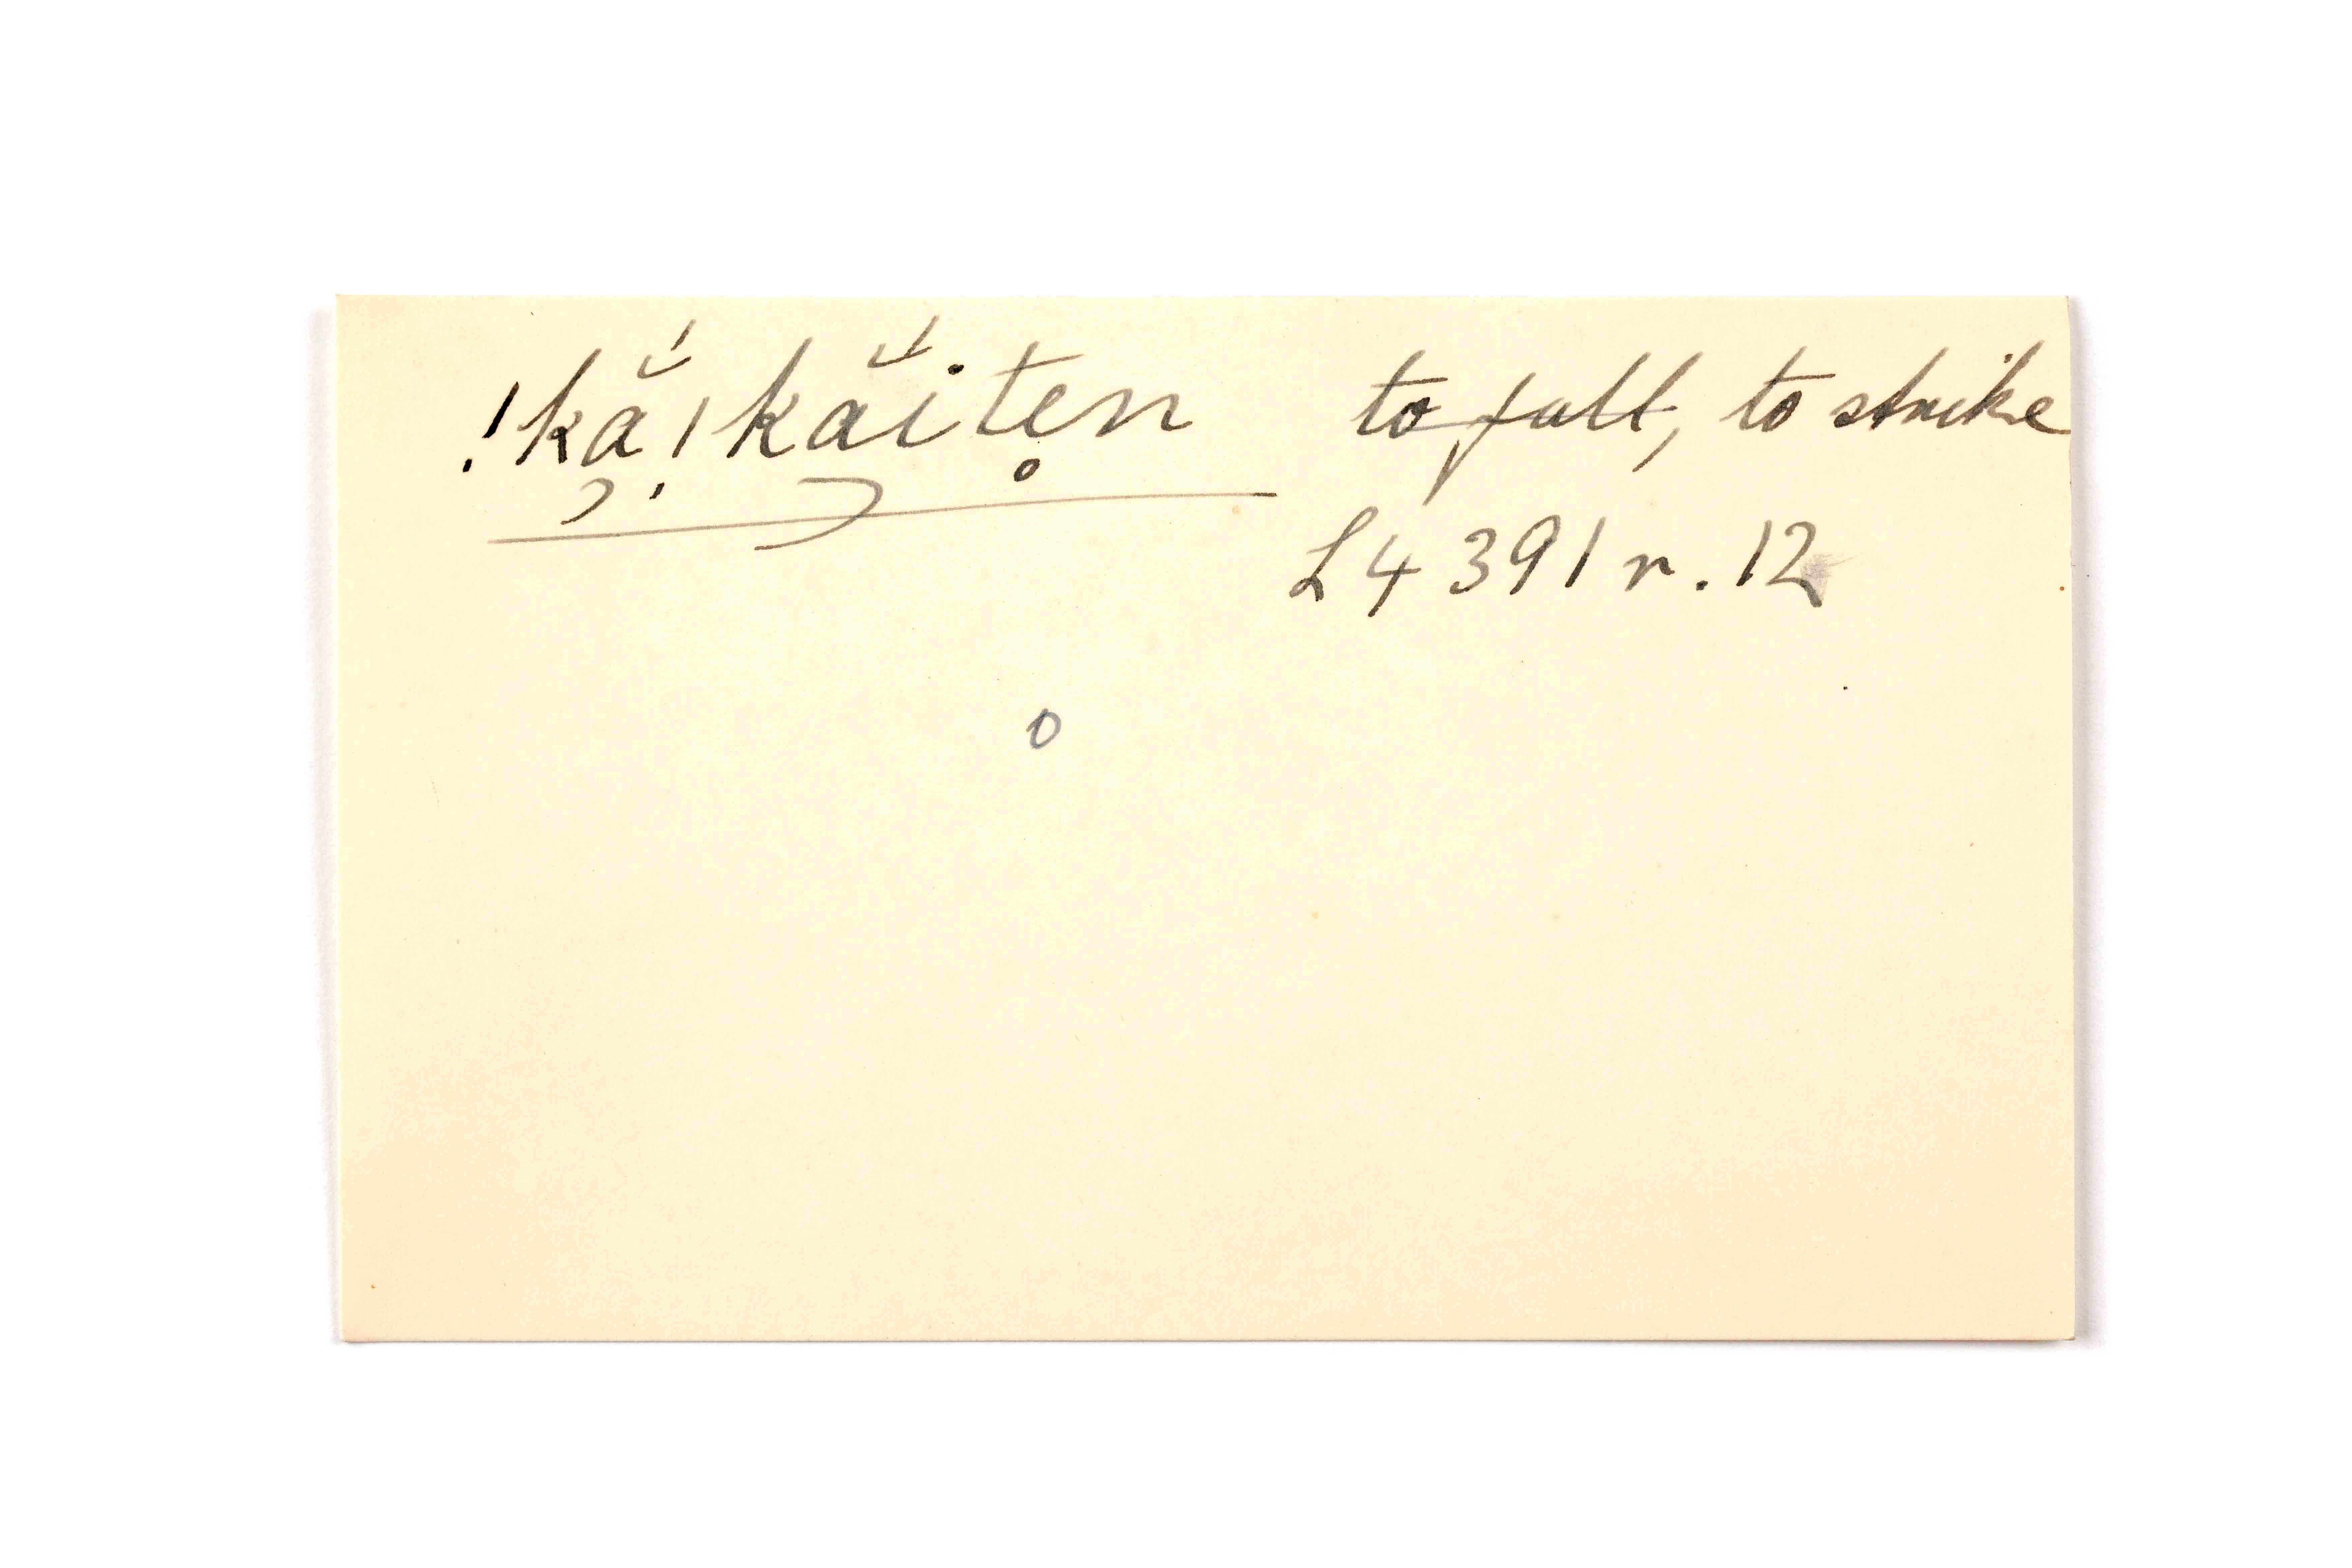 !kắ̠!kắiten̥ ~~to full~~, to strike
L4 391 r. 12
0